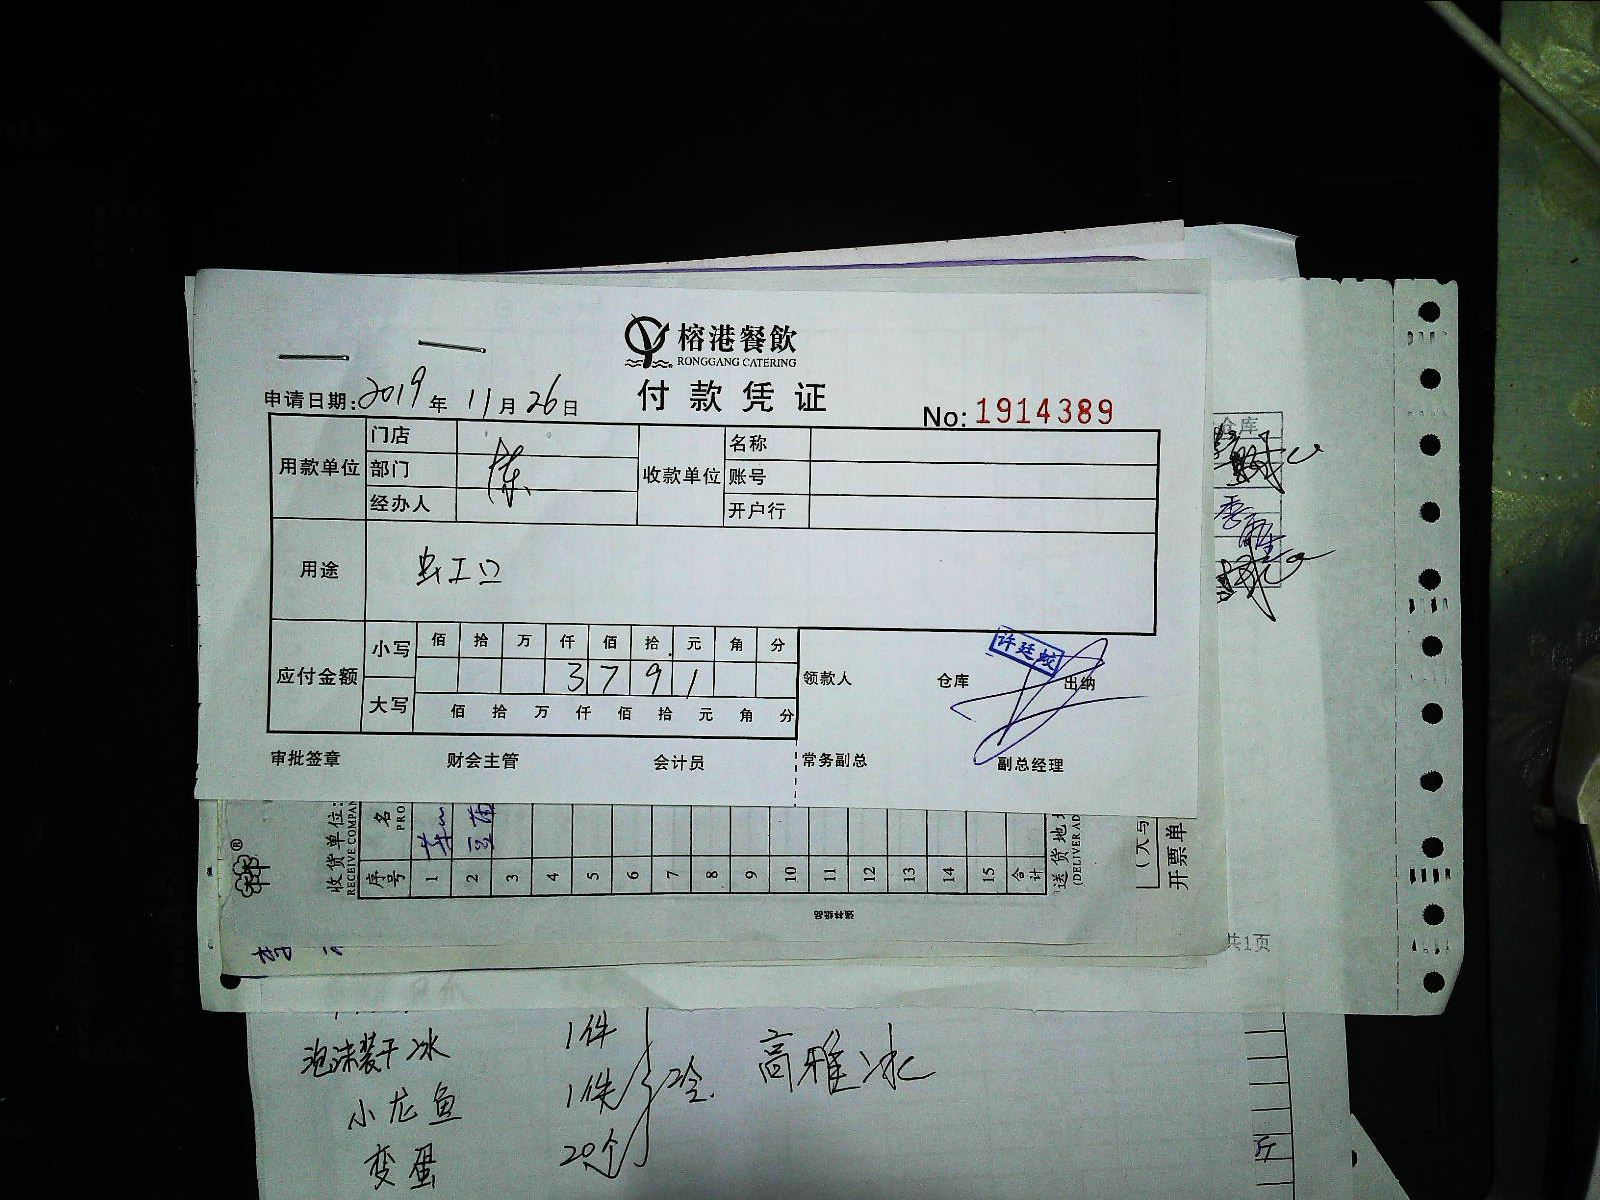 榕港餐飲
RONGGANG CATERING
付款凭证
申请日期:2019年11月26日
No:1914389
用款单位 门店 收款单位 名称
部门 陈 账号
经办人 开户行
用途
应付金额 小写 佰 拾 万 仟 佰 拾 元 角 分
3 7 9 1
大写 佰 拾 万 仟 佰 拾 元 角 分
领款人 仓库 出纳
许廷蛟
审批签章 财会主管 会计员 常务副总 副总经理
仓库
收货单位:
RECEIVE COMPAN
序号 名
PRO
1 2 3 4 5 6 7 8 9 10 11 12 13 14 15 合计
送货地
(DELIVER AD
开票单
共1页
泡沫装干冰 1件
小龙鱼 1件 冷 高雅冰
变蛋 20个
斤